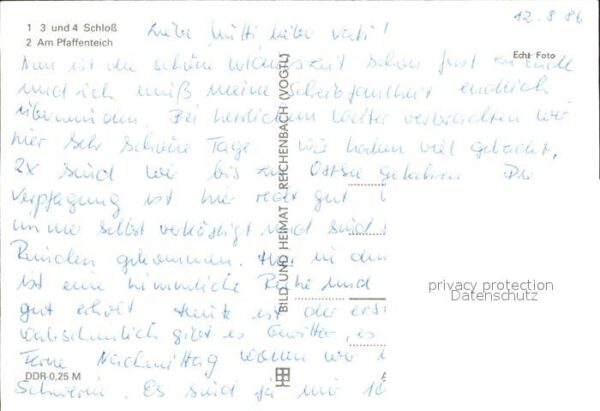 1 3 und 4 Schloß
2 Am Pfaffenteich
12.8 86
Liebe Mutti, lieber Vati!
Echt Foto
Nun ist die schöne Urlaubszeit schon fast zu Ende
und ich muß meine Schreibfaulheit endlich
überwinden. Bei herrlichem Wetter verbrachten wir
hier sehr schöne Tage. Wir haben viel gebadet,
2x sind wir bis zur Ostsee gefahren. Die
Verpflegung ist hier recht gut.
immer selbst verköstigt und sind
Runden gekommen. Hier in dem
ist eine himmliche Ruhe und
gut erholt. Heute ist der ers
wahrscheinlich gibt es Gewitter, es
Ferne. Nachmittag wollen wir
Schwerin. Es sind ja nur
BILD UND HEIMAT REICHENBACH (VOGTL)
privacy protection
Datenschutz
DDR 0,25 M